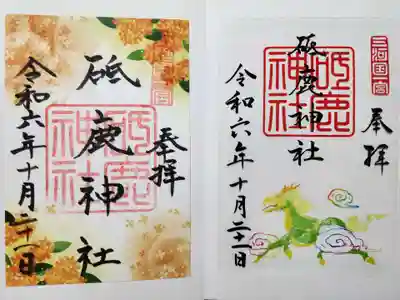 奉拝
砥鹿神社
令和六年十月二十一日
三河国一宮
奉拝
砥鹿神社
砥鹿神社
令和六年十月二十一日